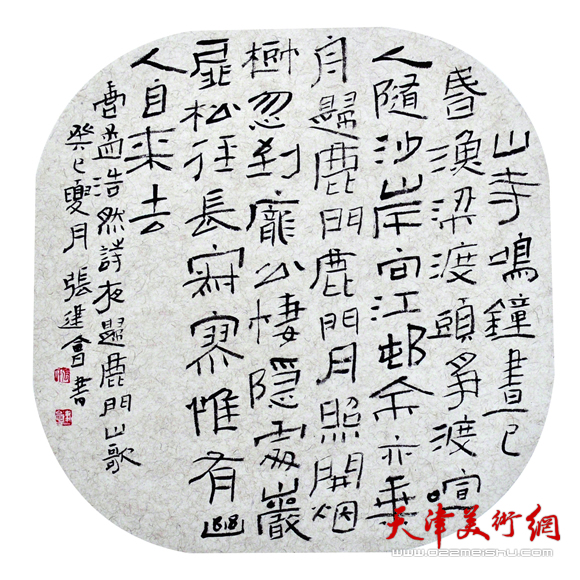 山寺鳴鐘晝已
昏漁梁渡頭爭渡喧
人隨沙岸向江邨余亦乘
舟歸鹿門鹿門月照開烟
樹忽到龐公棲隱處巖
扉松徑長寂寥惟有幽
人自来去
書孟浩然詩夜歸鹿門山歌
癸巳夏月張建會書
天津美術網
www.022meishu.com